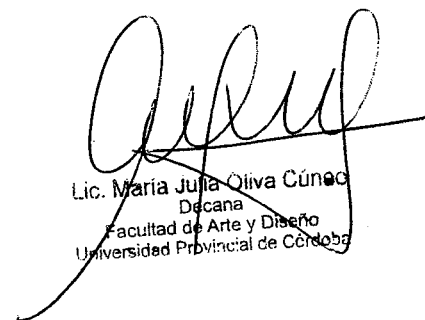 Lic. María Julia Oliva Cúneo
Decana
Facultad de Arte y Diseño
Universidad Provincial de Córdoba